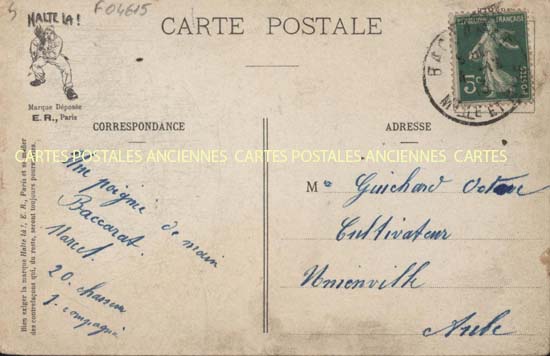 4 F04615
HALTE LÀ!
CARTE POSTALE
RÉPUBLIQUE FRANÇAISE
5c
POSTES
BAC
Marque Déposée
E. R., Paris
CORRESPONDANCE
ADRESSE
CARTES POSTALES ANCIENNES CARTES POSTALES ANCIENNES CARTES
Bien exiger la marque Halte là !, E. R., Paris et se méfier
des contrefaçons qui, du reste, seront toujours poursuivies.
Une poigné de main
Baccarat.
Marcel
20. chasseur
1. compagnie
Mr Guichard Octave
Cultivateur
Unienville
Aube